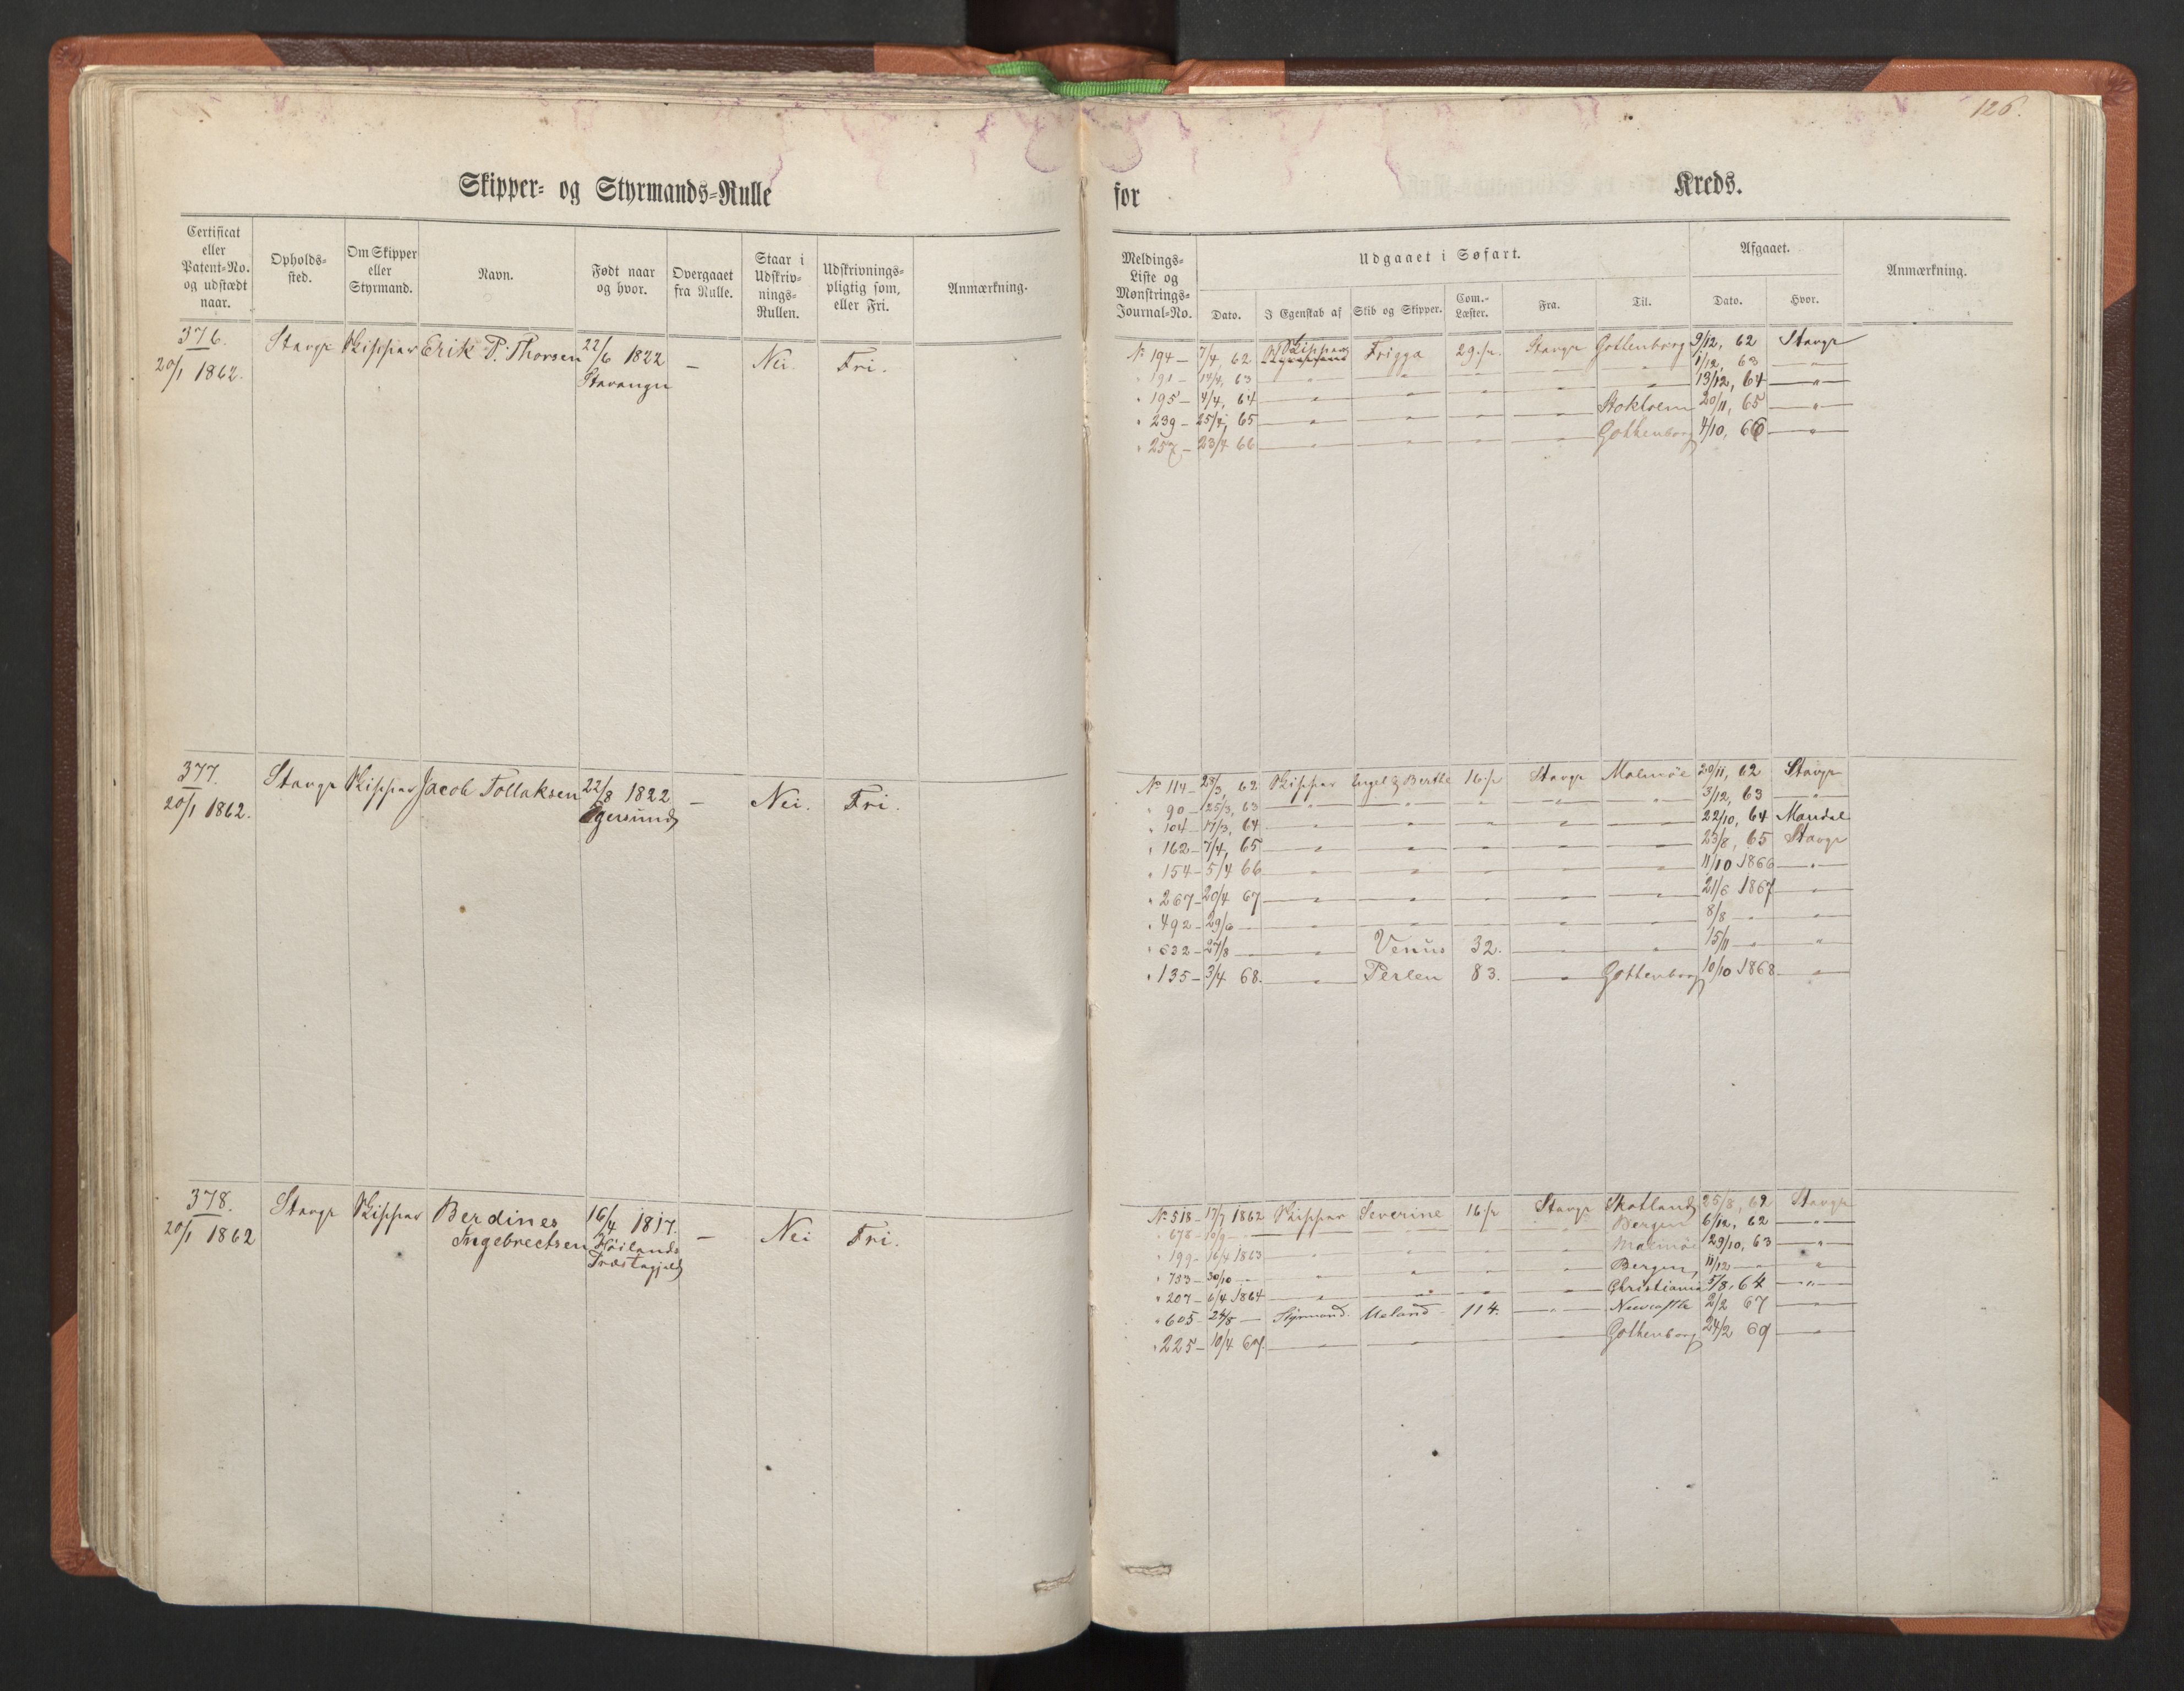 126.
Skipper- og Styrmands-Rulle
for
Kreds.
Certificat eller Patent-No. og udstædt naar.
Opholds-sted.
Om Skipper eller Styrmand.
Navn.
Født naar og hvor.
Overgaaet fra Rulle.
Staar i Udskriv-nings-Rullen.
Udskrivnings-pligtig som, eller Fri.
Anmærkning.
Meldings-Liste og Mønstrings-Journal-No.
Udgaaet i Søfart.
Dato.
I Egenskab af
Skib og Skipper.
Com.-Læster.
Fra.
Til.
Afgaaet.
Dato.
Hvor.
Anmærkning.
376. Stavgr Skipper Erik P. Thorsen 22/6 1822 — Nei. Fri.
20/1 1862. Stavanger
No 194 — 7/4, 62 Skipper Frigga 29 Stavgr Gothenborg 9/12, 62 Stavgr
" 191 — 14/4, 63 — " — " — " — " — " 1/12, 63 — "
" 195 — 4/4, 64 — " — " — " — " — " 13/12, 64 — "
" 239 — 25/4, 65 — " — " — " — " Stokholm 20/11, 65 — "
" 257 — 23/4 66 — " — " — " — " Gothenborg 4/10, 66 — "
377. Stavgr Skipper Jacob Tollaksen 22/8 1822 — Nei. Fri.
20/1 1862. Egersund
No 114 — 28/3, 62 Skipper Engel & Berthe 16 Stavgr Malmöe 20/11, 62 Stavgr
" 90 — 25/3, 63 — " — " — " — " — " 3/12, 63 — "
" 104 — 17/3, 64 — " — " — " — " — " 22/10, 64 Mandal
" 162 — 7/4, 65 — " — " — " — " — " 23/8, 65 Stavgr
" 154 — 5/4 66 — " — " — " — " — " 11/10 1866 — "
" 267 — 20/4 67 — " — " — " — " — " 21/6 1867 — "
" 492 — 29/6 — " — " — " — " — " 8/8 — " — "
" 632 — 27/8 — " Venus 32. — " — " 15/11 — " — "
" 135 — 3/4 68. — " Perlen 83. — " Gothenborg 10/10 1868 — "
378. Stavgr Skipper Berdines 16/4 1817. — Nei Fri.
20/1 1862 Ingebrectsen Höilands
Præstegjeld
No 518 — 17/7 1862 Skipper Severine 16 Stavgr Skotland 25/8, 62 Stavgr
" 678 — 10/9 — " — " — " — " Bergen 6/12, 62 — "
" 199 — 16/4 1863 — " — " — " — " Malmöe 29/10, 63 — "
" 733 — 30/10 — " — " — " — " Bergen, 11/12 — " — "
" 207 — 6/4 1864 — " — " — " — " Christiania 5/8, 64 — "
" 605 — 24/8 — Styrmand. Ueland 114. — " Newcastle 2/2 67 — "
" 225 — 10/4 67. — " — " — " — " Gothenborg 24/2 69 — "